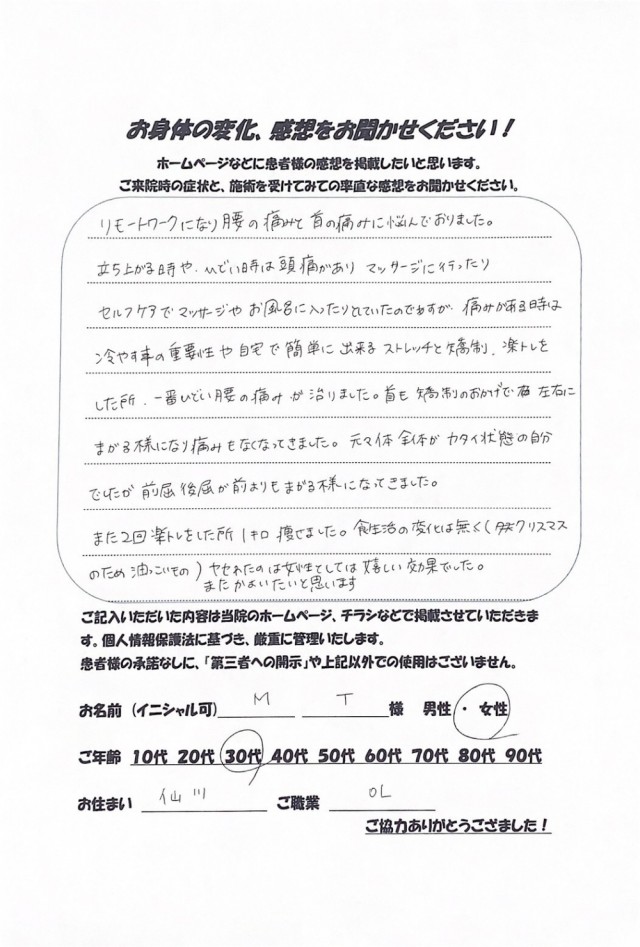 お身体の変化、感想をお聞かせください！
ホームページなどに患者様の感想を掲載したいと思います。
ご来院時の症状と、施術を受けてみての率直な感想をお聞かせください。
リモートワークになり腰の痛みと首の痛みに悩んでおりました。
立ち上がる時や、ひどい時は頭痛があり マッサージに行ったり
セルフケアでマッサージや お風呂に入ったりしていたのですが、痛みがある時は
冷やす事の重要性や自宅で簡単に出来るストレッチと矯制、楽トレを
した所、一番ひどい腰の痛みが治りました。首も矯制のおかげで 左右に
まがる様になり痛みもなくなってきました。元々体全体がカタイ状態の自分
でしたが前屈後屈が前よりもまがる様になってきました。
また2回楽トレをした所1キロ痩せました。食生活の変化は無く(クリスマス
のため油っこいもの)ヤセれたのは女性としては嬉しい効果でした。
またかよいたいと思います
ご記入いただいた内容は当院のホームページ、チラシなどで掲載させていただきま
す。個人情報保護法に基づき、厳重に管理いたします。
患者様の承諾なしに、「第三者への開示」や上記以外での使用はございません。
お名前（イニシャル可） M T 様 男性・女性
ご年齢 10代 20代 30代 40代 50代 60代 70代 80代 90代
お住まい 仙川 ご職業 OL
ご協力ありがとうござました！